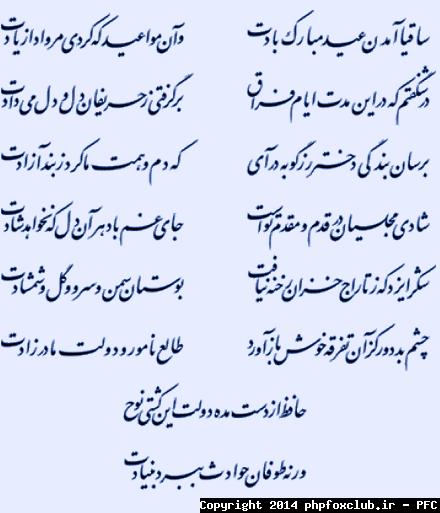 ساقیا آمدن عید مبارک بادت وآن مواعید که کردی مرواد از یادت
در شگفتم که در این مدت ایام فراق برگرفتی ز حریفان دل و دل می‌دادت
برسان بندگی دختر رز گو به درآی که دم و همت ما کرد ز بند آزادت
شادی مجلسیان در قدم و مقدم تو است جای غم باد هر آن دل که نخواهد شادت
شکر ایزد که ز تاراج خزان رخنه نیافت بوستان سمن و سرو و گل و شمشادت
چشم بد دور کز آن تفرقه خوش بازآورد طالع نامور و دولت مادرزادت
حافظ از دست مده دولت این کشتی نوح
ورنه طوفان حوادث ببرد بنیادت
Copyright 2014 phpfoxclub.ir - PFC